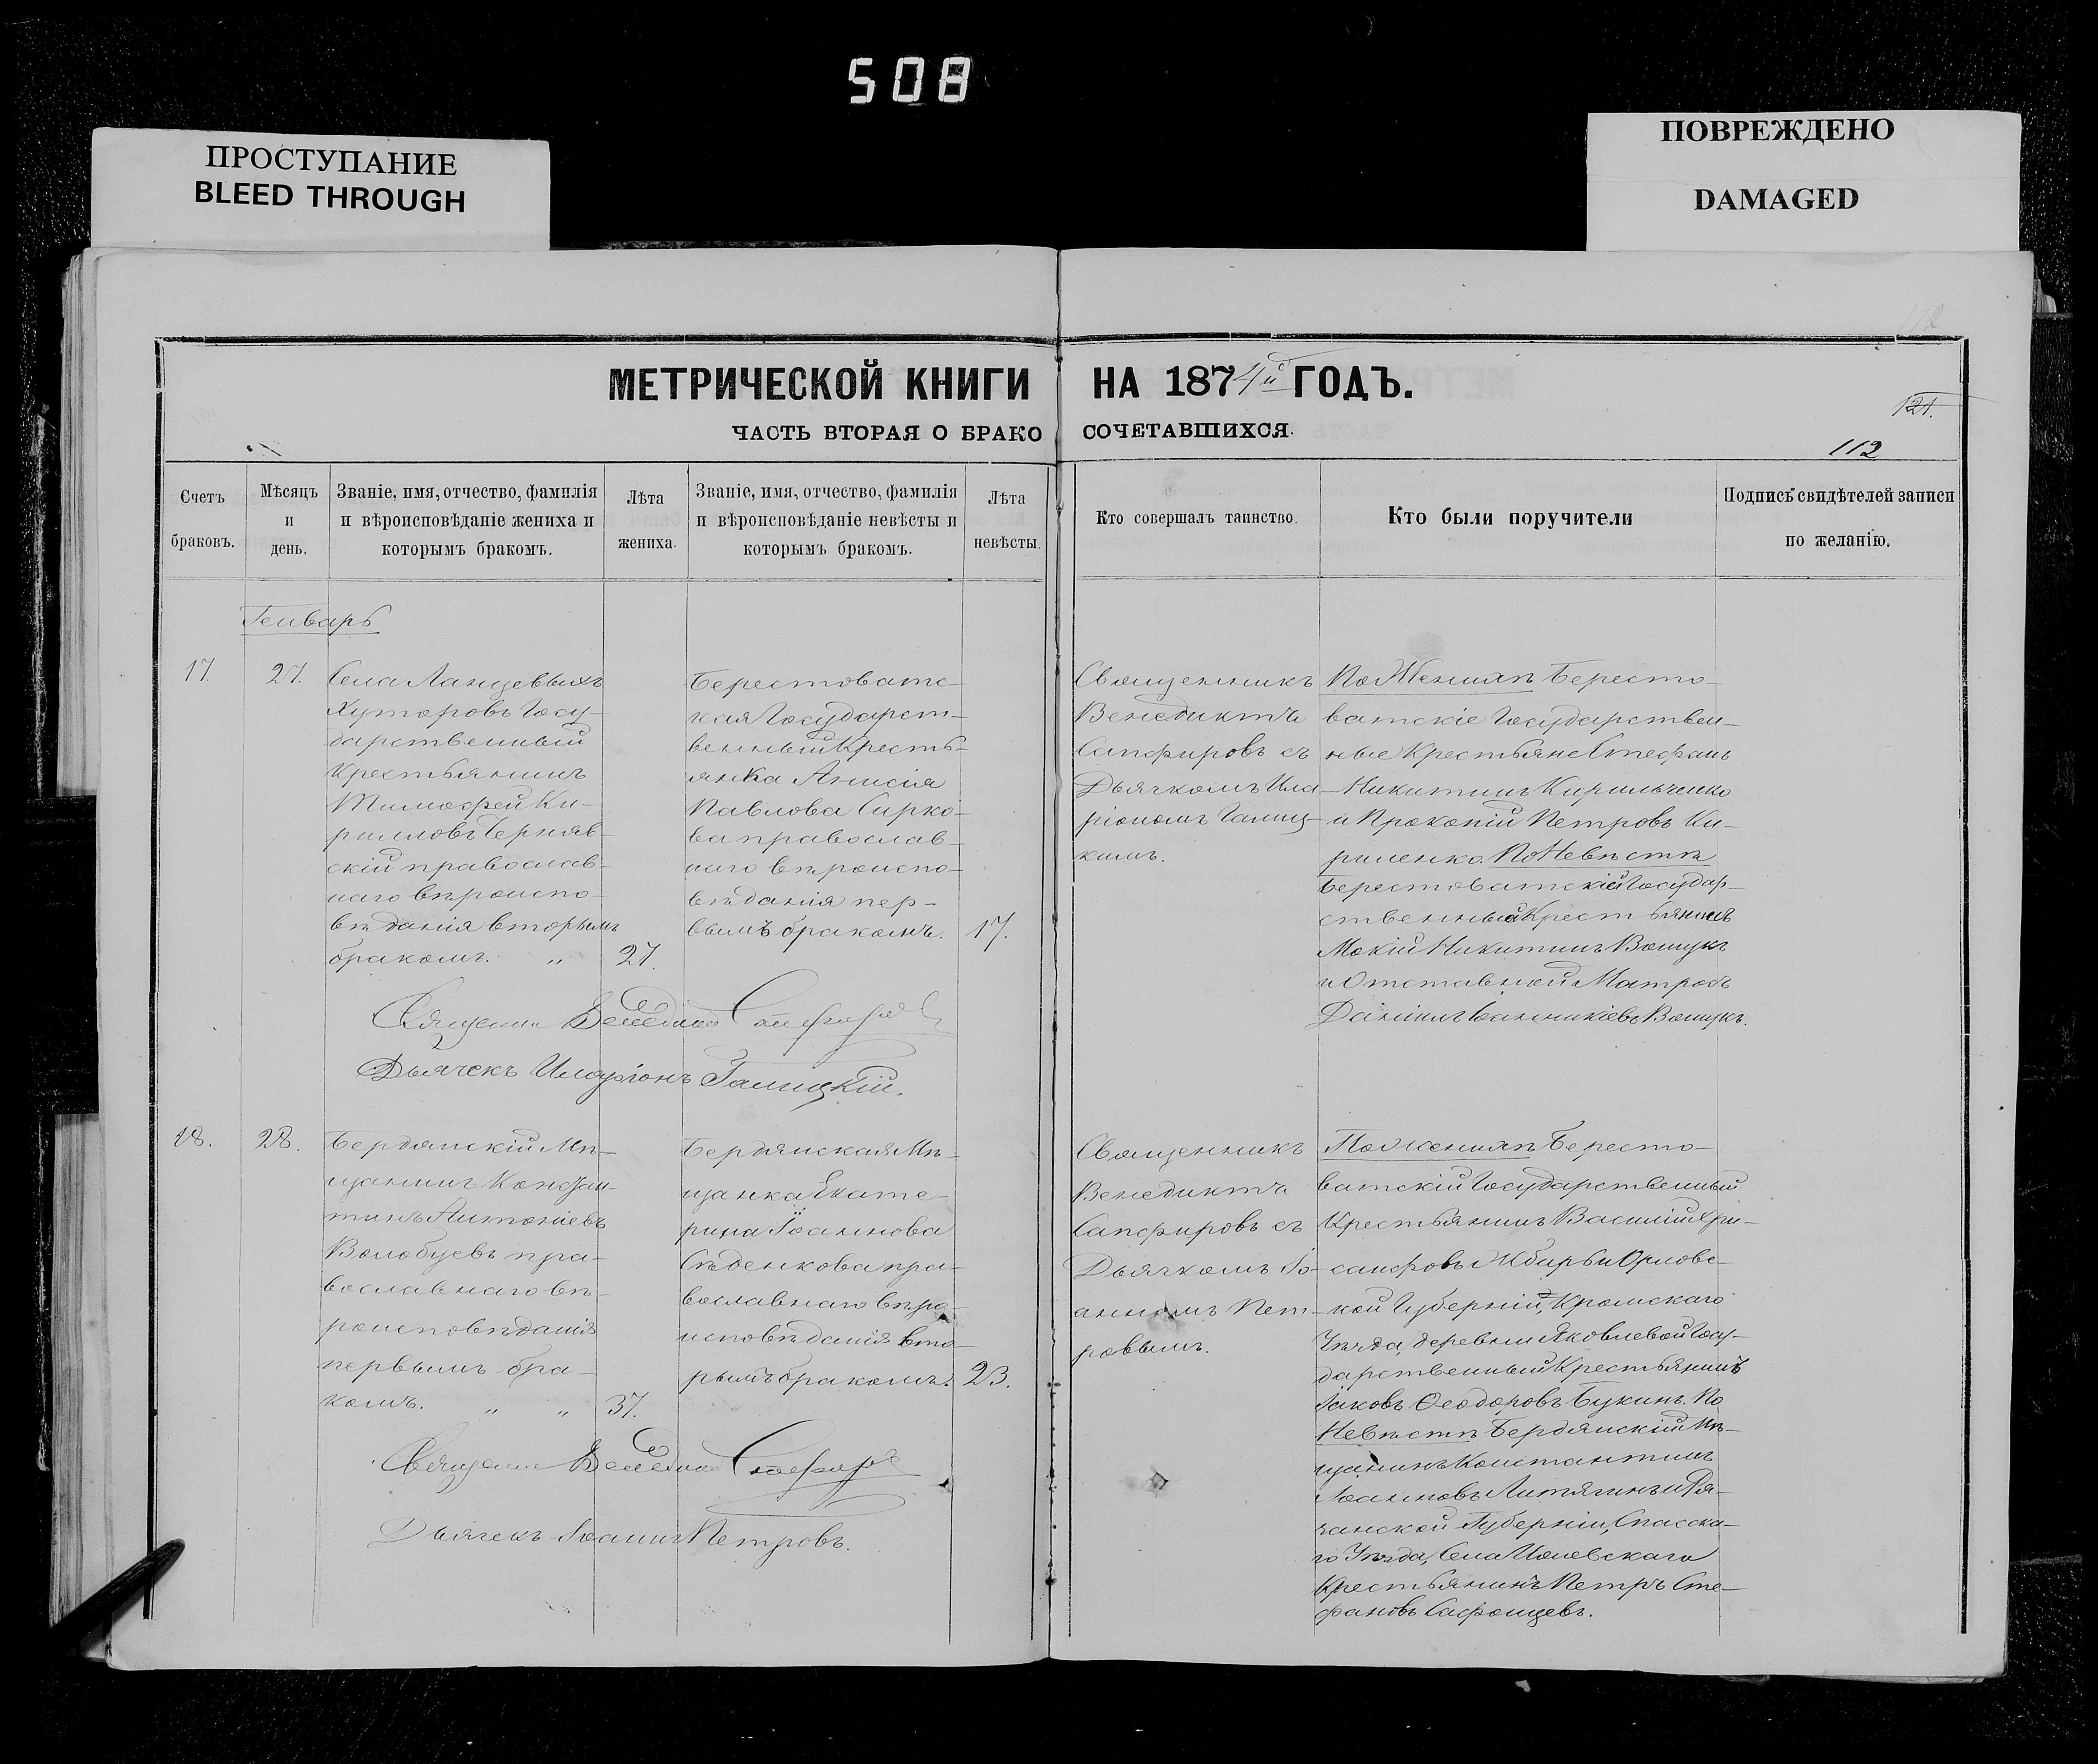 508
ПРОСТУПАНИЕ
BLEED THROUGH
ПОВРЕЖДЕНО
DAMAGED
МЕТРИЧЕСКОЙ КНИГИ НА 1874й ГОДЪ.
ЧАСТЬ ВТОРАЯ О БРАКОСОЧЕТАВШИХСЯ.
121.
112
Счетъ браковъ.
Мѣсяцъ и день.
Званіе, имя, отчество, фамилія
и вѣроисповѣданіе жениха и
которымъ бракомъ.
Лѣта
жениха.
Званіе, имя, отчество, фамилія
и вѣроисповѣданіе невѣсты и
которымъ бракомъ.
Лѣта
невѣсты.
Кто совершалъ таинство.
Кто были поручители
Подпись свидѣтелей записи
по желанію.
Генварь
17.
27.
Села
Хуторовъ Госу-
дарственный
Крестьянинъ
Тимофей Ки-
рилловъ Черняв-
скій православ-
наго вѣроиспо-
вѣданія вторымъ
бракомъ. "
27.
Берестоватс-
кая Государст-
венный Кресть-
янка Анисія
Павлова Сирко-
ва православ-
наго вѣроиспо-
вѣданія пер-
вымъ бракомъ.
17.
Священникъ
Венедиктъ
Сапфировъ съ
Дьячкомъ Ила-
ріономъ Галиц-
кимъ.
По Женихѣ Бересто-
ватскіе Государствен-
ные Крестьяне Стефанъ
Никитинъ Кирильченко
и Прокопій Петровъ Ки-
риленко. По Невѣстѣ
Берестоватскій Государ-
ственный Крестьянинъ
Мокій Никитинъ
и Отставной Матросъ
Даніилъ Іоанникіевъ
Священникъ Венедиктъ Сапфировъ
Дьячекъ Иларіонъ Галицкій.
18.
28.
Бердянскій Мѣ-
щанинъ Констан-
тинъ Антоніевъ
Волобуевъ пра-
вославнаго вѣ-
роисповѣданія
первымъ бра-
комъ. " "
37.
Бердянская Мѣ-
щанка Екате-
рина Іоаннова
Сѣденкова пра-
вославнаго вѣро-
исповѣданія вто-
рымъ бракомъ.
23.
Священникъ
Венедиктъ
Сапфировъ съ
Дьячкомъ Іо-
анномъ Пет-
ровымъ.
По Женихѣ Бересто-
ватскій Государственный
Крестьянинъ Василій Хри-
санфовъ Жбырь и Орловс-
кой Губерніи, Кромскаго
Уѣзда, деревни Яковлевой Госу-
дарственный Крестьянинъ
Іаковъ Ѳеодоровъ Букинъ. По
Невѣстѣ Бердянскій Мѣ-
щанинъ Константинъ
Іоанновъ Литягинъ и Ря-
занской Губерніи, Спасска-
го Уѣзда, Села
Крестьянинъ Петръ Сте-
фановъ Сафонцевъ.
Священникъ Венедиктъ Сапфировъ
Дьячекъ Іоаннъ Петровъ.